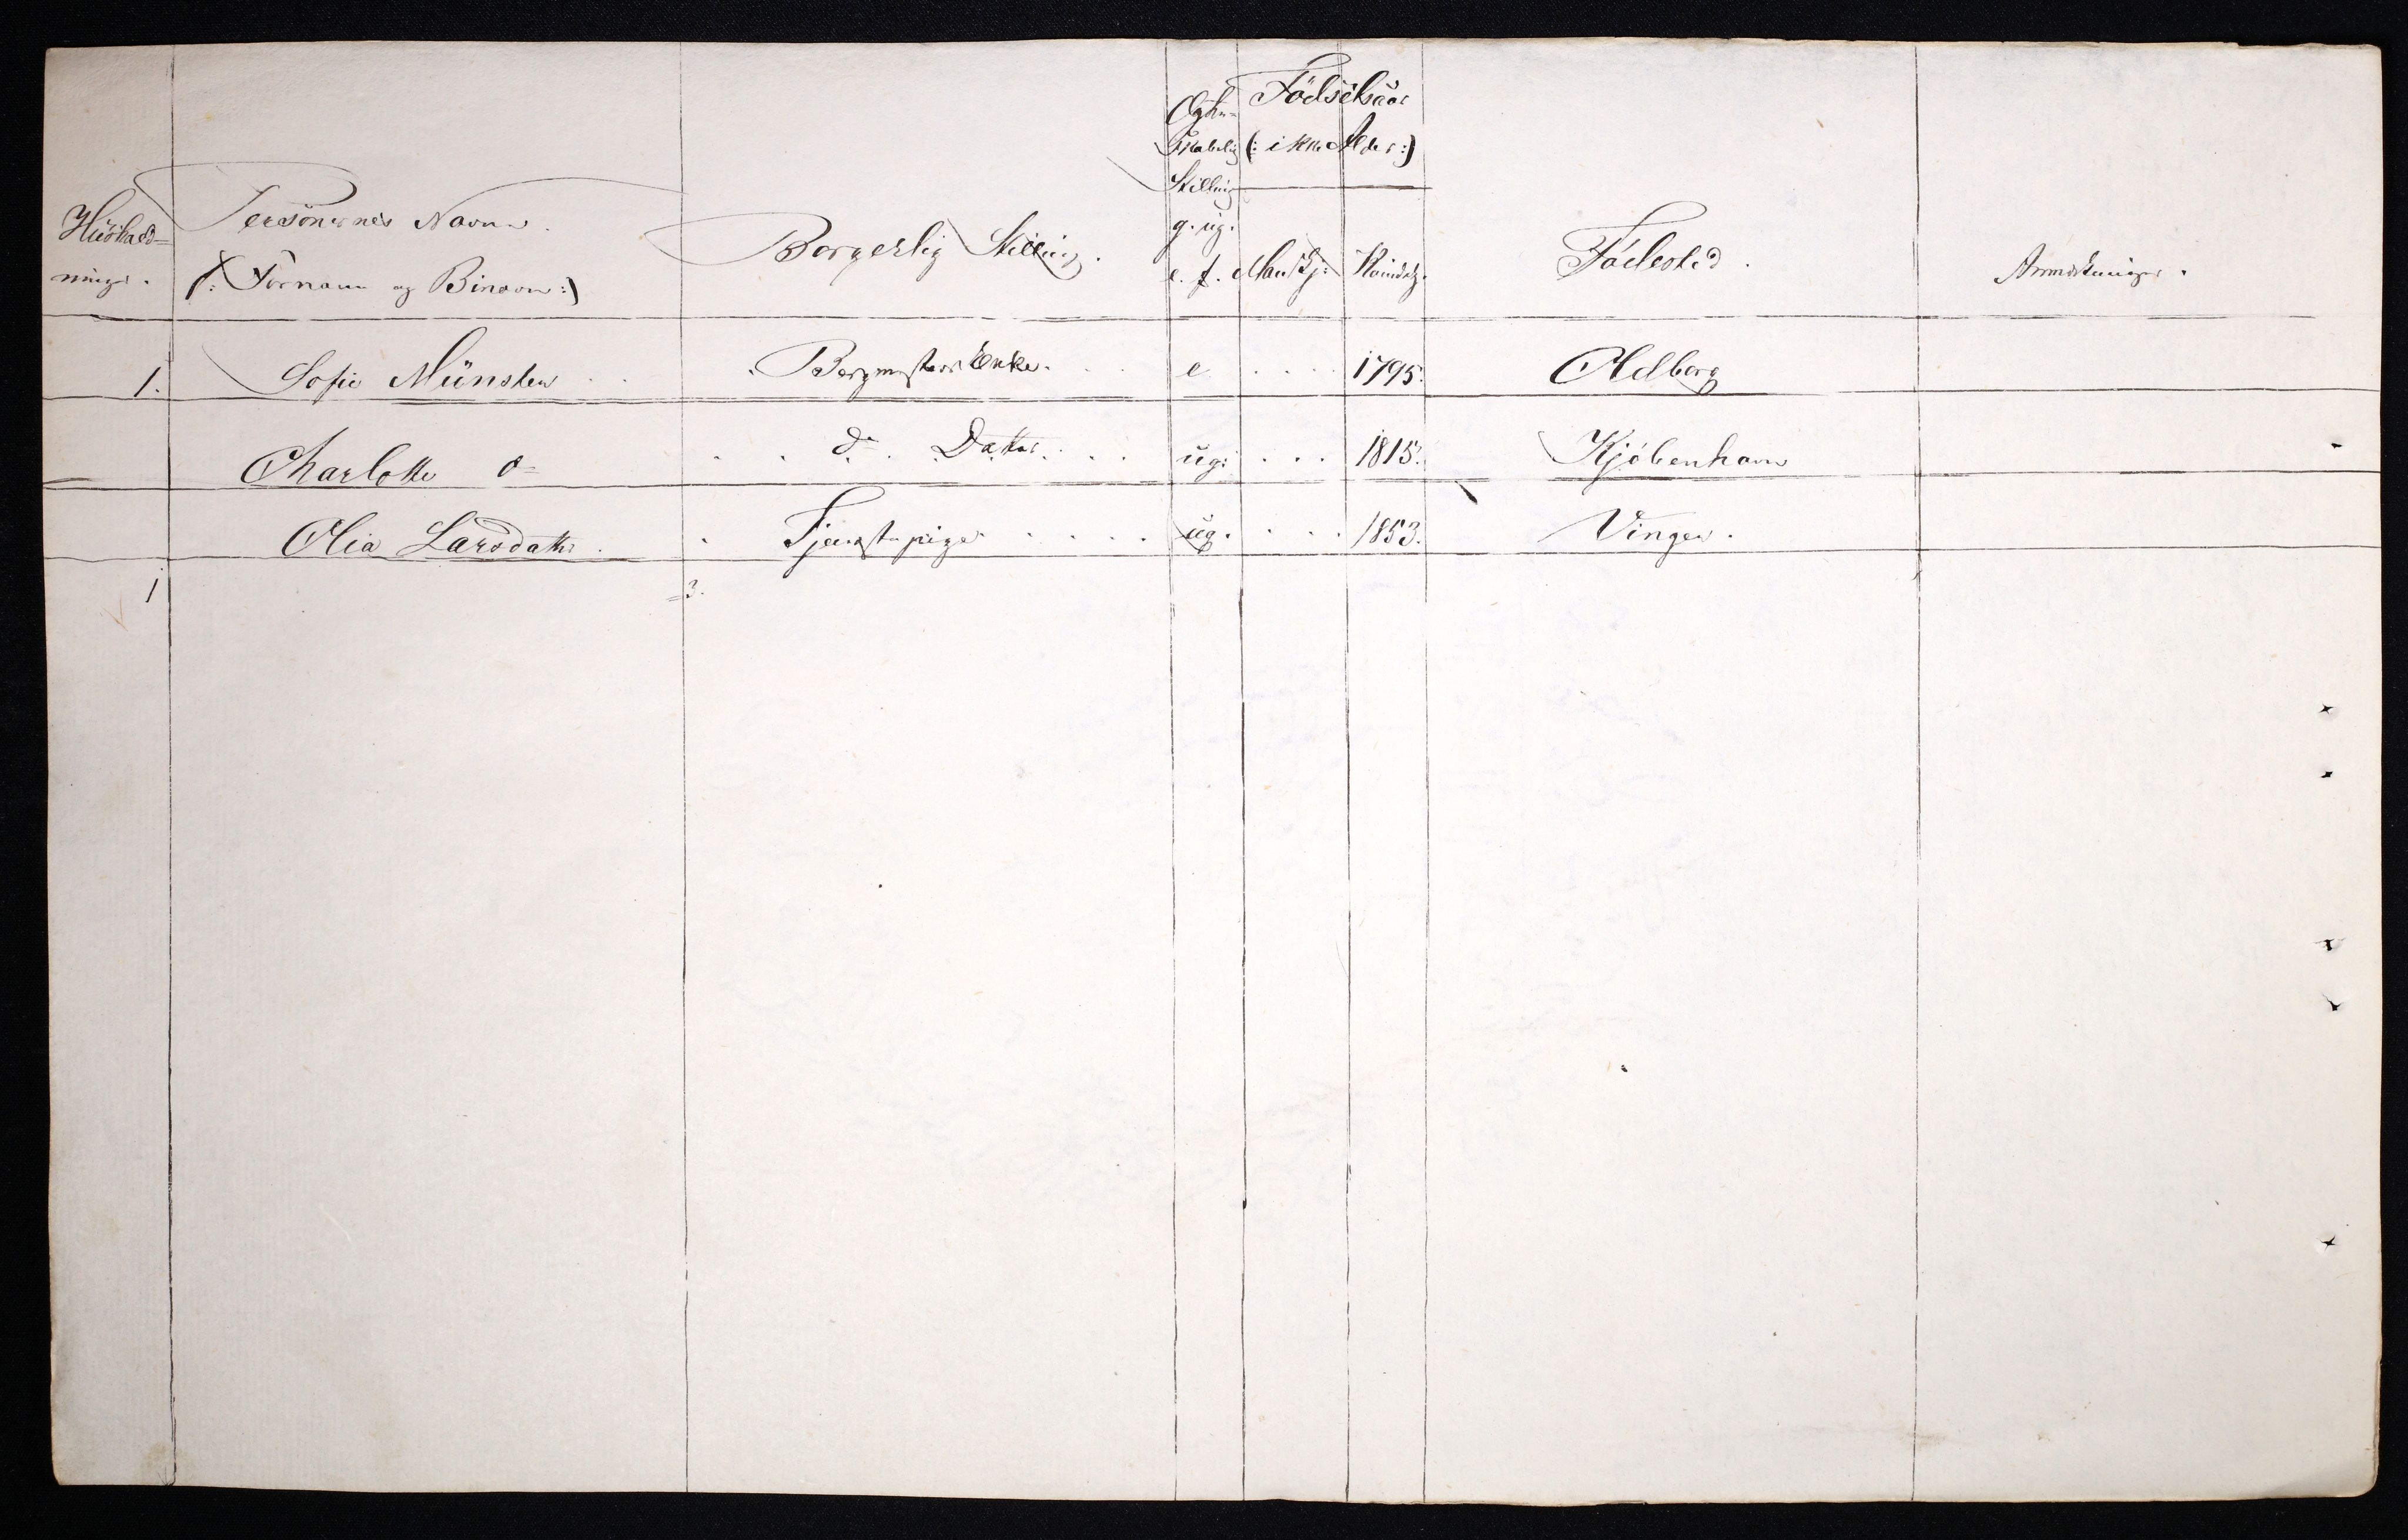 Husholdninger.
Personernes Navne.
(: Fornavn og Binavn :)
Borgerlig Stilling.
Ægteskabelig Stilling
g. ug. e. f.
Födselsaar
(: ikke Alder :)
Mandkj: Kvindekj.
Födested.
Anmærkninger.
1. Sofie Münster . . . Bergmesters Enke. . . e . . . . 1795. Aalborg
Charlotte do . . do . Datter . . . . ug: . . . 1815. Kjöbenhavn
Olia Larsdatter . . Tjenestepige . . . . . ug. . . . 1853. Vinger.
1 =3.